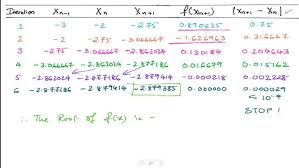 Iteration xn-1 xn xn+1 f(xn+1) |xn+1 - xn|
1 -3 -2 -2.75 0.890625 0.75
2 -2 -2.75 -3.066667 -1.626963 0.316667
3 -2.75 -3.066667 -2.862024 0.130184 0.204643
4 -3.066667 -2.862024 -2.877186 0.016679 0.015162
5 -2.862024 -2.877186 -2.879414 -0.000218 0.002228
6 -2.877186 -2.879414 -2.879385 0.000002 0.000029
10⁻⁴
∴ The Root of f(x) is -
STOP!